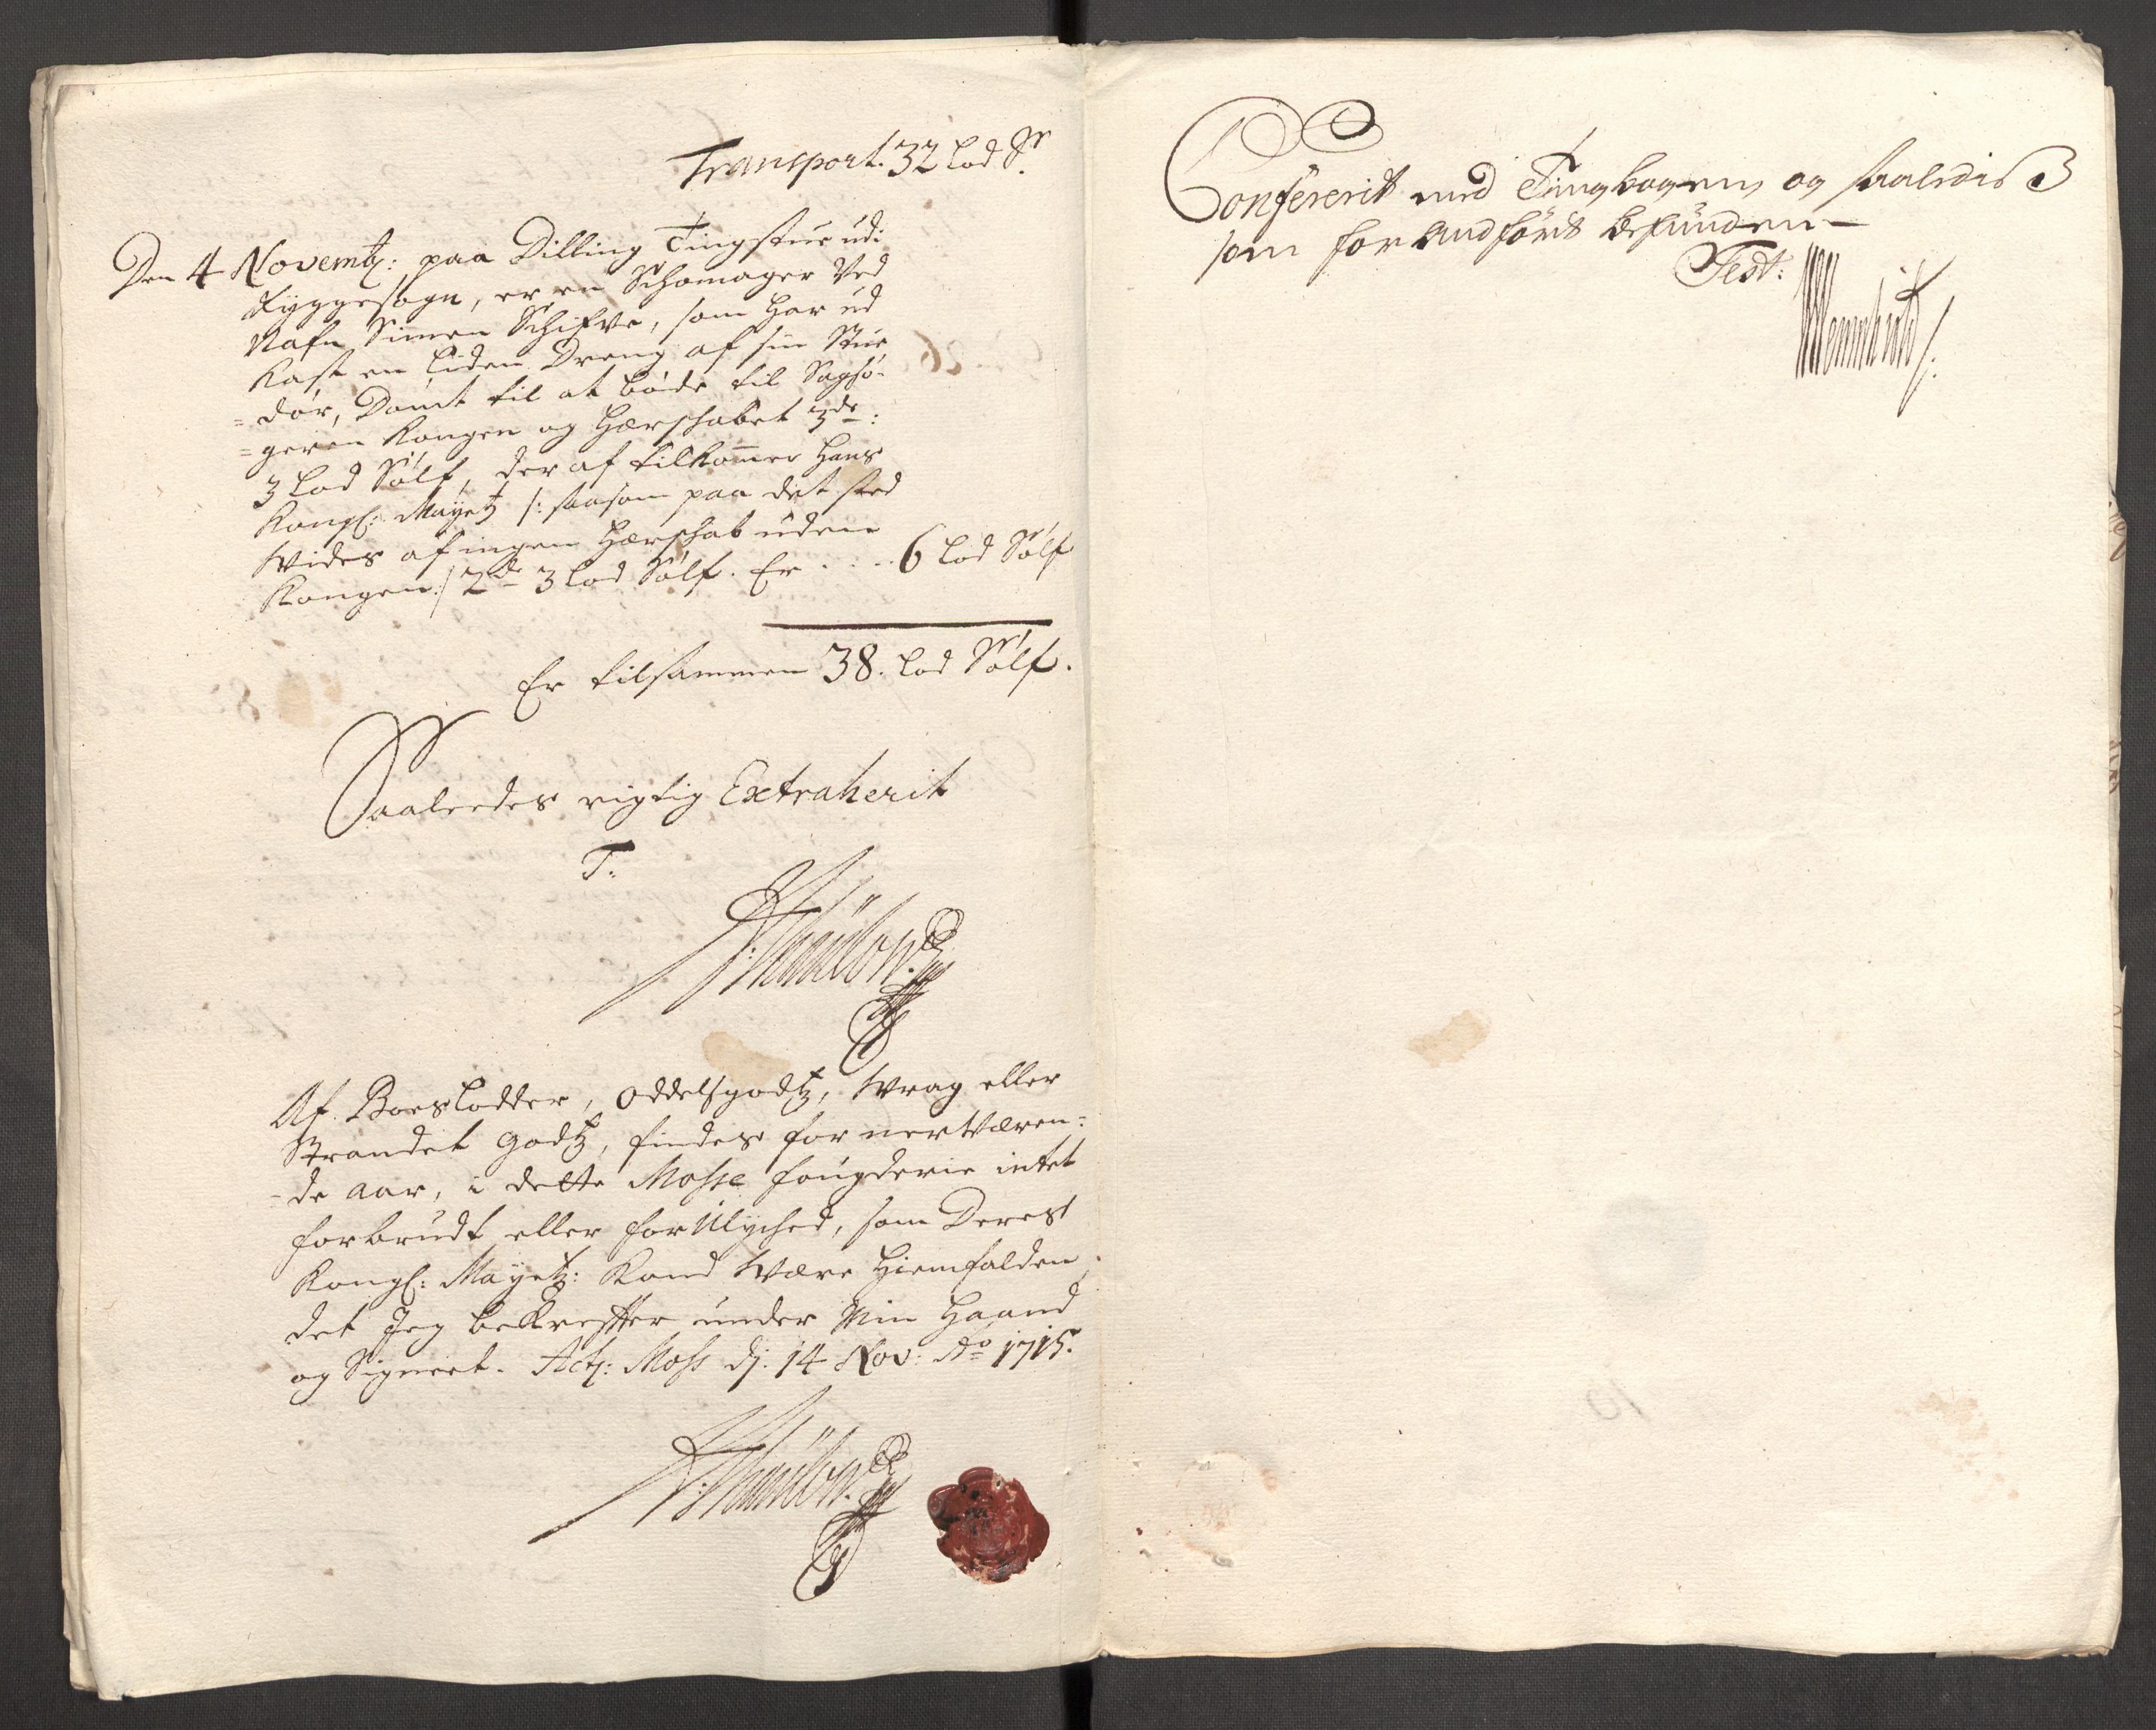 Transport. 32 Lod Sr.
Den 4 Novembr: paa Dilling Tingstue udi
Ryggesogn, er en Schomager Ved
Nafn Simen Schifve, som har ud
Kast en liden Dreng af sin Stue
= dör, Dömt til at böde til Sagsö-
= geren Kongen og Herschabet 3de:
3 Lod Sölf, der af tilkommer Hans
Kongl: Mayetz /: saasom paa det sted
Wides af ingen Herschab uden
Kongen :/ 2de 3 Lod Sölf. Er . . . . 6 Lod Sölf
Er tilsammen 38. Lod Sölf.
Saaledes rigtig Extraherit
T.
Af Boeslodder, Oddelsgodtz, Wrag eller
Strandet godtz, findes for nerværen=
= de aar, i dette Mosse fougderie intet
forbrudt eller forUlyched, som Deres
Kongl: Mayetz: Kand Være Hiemfalden,
det Jeg bekrefter under Min Haand
og Signeet. Actz: Moss dj. 14 Nov: Ao 1715.
Confererit med Tingbogen, og saaledis
som for Andfört befunden –
Test: